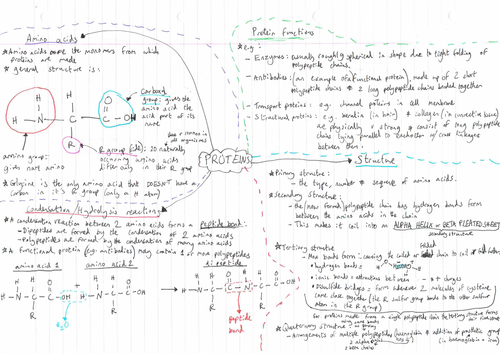 Amino acids
* Amino acids are the monomers from which
proteins are made
* general structure is:
H
H
N
C
R
C
O
OH
Carboxyl
group: gives the
amino acid the
acid part of its
name
amino group:
gives part amino
R group (side): 20 naturally
occurring amino acids
differ only in their R group
* Glycine is the only amino acid that DOESN'T have a
carbon in it's R group (only a H atom)
Condensation/Hydrolysis reactions
* A condensation reaction between 2 amino acids forms a peptide bond
- Dipeptides are formed by the condensation of 2 amino acids
- Polypeptides are formed by the condensation of many amino acids
* A functional protein (e.g. antibodies) may contain 1 or more polypeptides
amino acid 1
amino acid 2
dipeptide
H₂O
Peptide
bond
PROTEINS
Protein functions
* e.g:
- Enzymes: usually roughly spherical in shape due to tight folding of
polypeptide chains.
- Antibodies: (an example of a functional protein), made up of 2 short
polypeptide chains & 2 long polypeptide chains bonded together
- Transport proteins: e.g. channel proteins in cell membrane
- Structural proteins: e.g. keratin (in hair) & collagen (in connective tissue)
are physically strong & consist of long polypeptide
chains lying parallel to each other w/ cross linkages
between them.
Structure
* Primary structure:
- the type, number & sequence of amino acids.
* Secondary structure:
- the (now formed) polypeptide chain has hydrogen bonds form
between the amino acids in the chain
- This makes it coil into an ALPHA HELIX or BETA PLEATED SHEET
secondary structure
* Tertiary structure
- More bonds form:
hydrogen bonds
ionic bonds = attractions between - & + charges
Disulfide bridges = form whenever 2 molecules of cysteine
come close together (the R sulfur group bonds to the other sulfur
atom in the R group)
* Quaternary structure
- Arrangements of multiple polypeptides